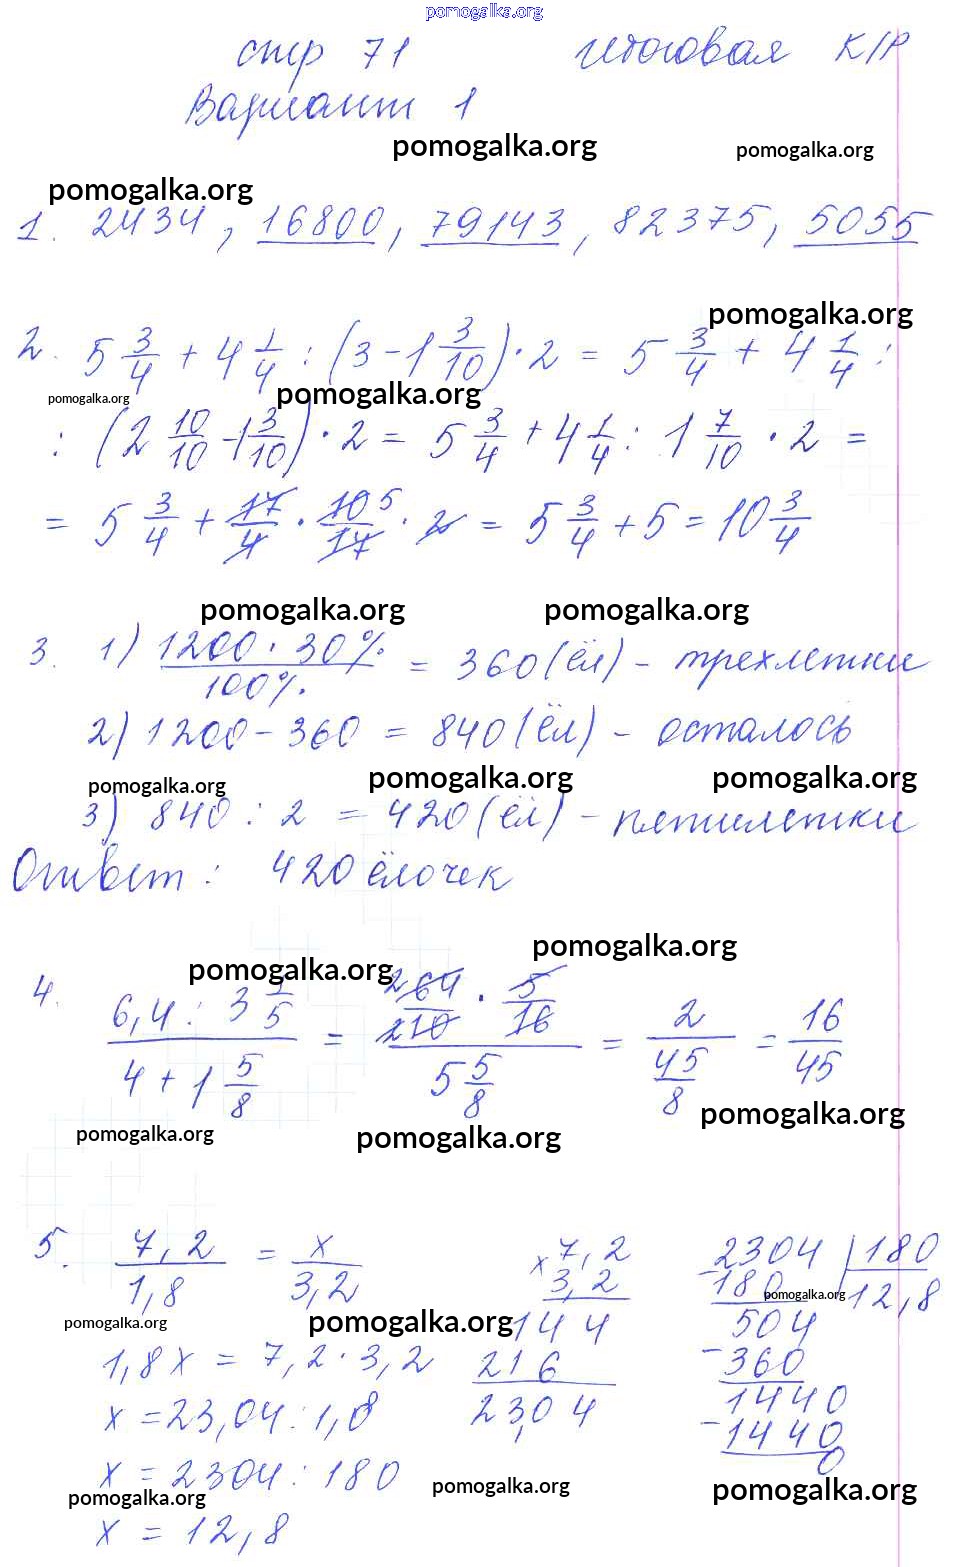 pomogalka.org
стр 71 итоговая К/Р
Вариант 1
pomogalka.org pomogalka.org
pomogalka.org
1. 2434, 16800, 79143, 82375, 5055
pomogalka.org
2. 5 3/4 + 4 1/4 : (3 - 1 3/10) · 2 = 5 3/4 + 4 1/4 :
pomogalka.org pomogalka.org
: (2 10/10 - 1 3/10) · 2 = 5 3/4 + 4 1/4 : 1 7/10 · 2 =
= 5 3/4 + 17/4 · 10 5/17 · 2 = 5 3/4 + 5 = 10 3/4
pomogalka.org pomogalka.org
3. 1) 1200 · 30% / 100% = 360 (ёл) - трехлетки
2) 1200 - 360 = 840 (ёл) - осталось
pomogalka.org pomogalka.org pomogalka.org
3) 840 : 2 = 420 (ёл) - пятилетки
Ответ: 420 ёлочек
pomogalka.org
pomogalka.org
4. 6,4 : 3 1/5 / 4 + 1 5/8 = 2 64/2 10 · 5/16 / 5 5/8 = 2 / 45/8 = 16/45
pomogalka.org pomogalka.org pomogalka.org
5. 7,2/1,8 = x/3,2 x 7,2 2304 | 180
3,2 -180 12,8
pomogalka.org
pomogalka.org pomogalka.org 144 504
1,8x = 7,2 · 3,2 216 -360
x = 23,04 : 1,8 23,04 1440
-1440
x = 2304 : 180 0
pomogalka.org pomogalka.org pomogalka.org
x = 12,8